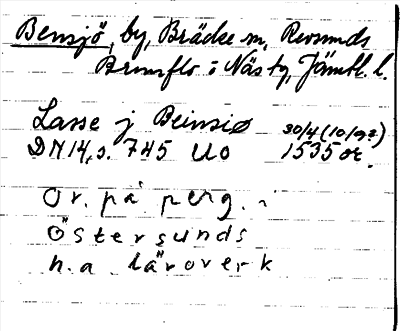 Bensjö, by, Bräcke sn, Revsunds
Brunflo o Näs tg, Jämtl. l.
Lasse j Beinsiø 30/4 (10/92)
DN14, s. 745 uo 1535 or.
Or. på perg. i
Östersunds
h.a. läroverk